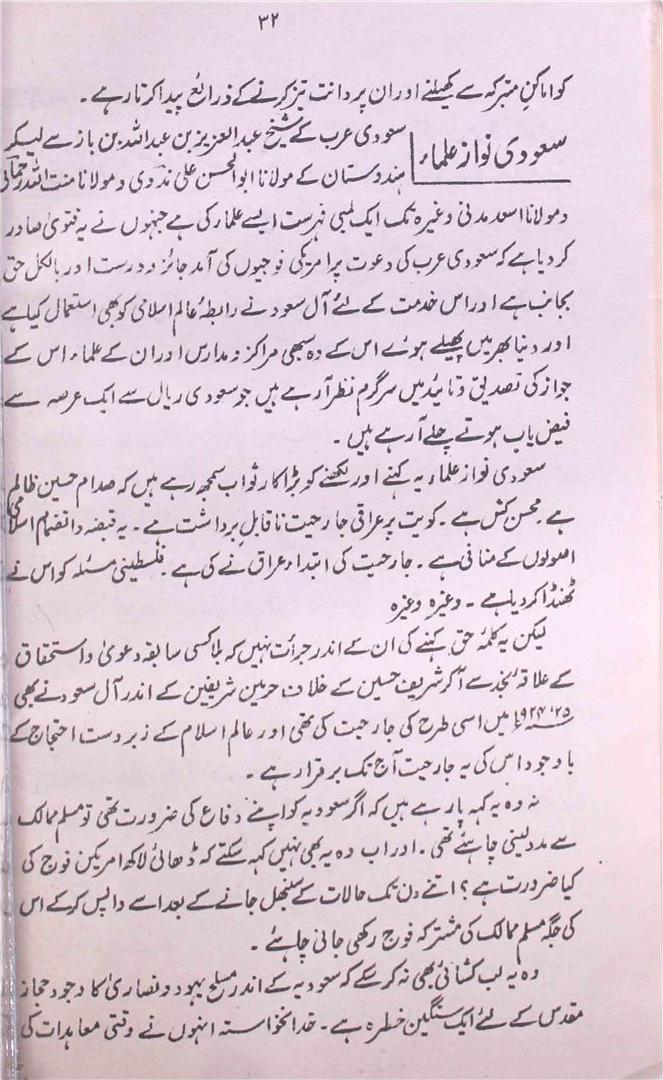 ۳۲
کو اماکنِ متبرکہ سے کھیلنے اور ان پر دانت تیز کرنے کے ذرائع پیدا کرتا رہے ۔
سعودی نواز علماء
سعودی عرب کے شیخ عبدالعزیز بن عبداللہ بن باز سے لیکر
ہندوستان کے مولانا ابوالحسن علی ندوی و مولانا منت اللہ رحمانی
و مولانا اسعد مدنی وغیرہ تک ایک لمبی فہرست ایسے علماء کی ہے جنہوں نے یہ فتویٰ صادر
کر دیا ہے کہ سعودی عرب کی دعوت پر امریکی فوجیوں کی آمد جائز و درست اور بالکل حق
بجانب ہے اور اس خدمت کے لئے آل سعود نے رابطۂ عالم اسلامی کو بھی استعمال کیا ہے
اور دنیا بھر میں پھیلے ہوئے اس کے وہ سبھی مراکز و مدارس اور ان کے علماء اس کے
جواز کی تصدیق و تائید میں سرگرم نظر آرہے ہیں جو سعودی ریال سے ایک عرصہ سے
فیض یاب ہوتے چلے آرہے ہیں ۔
سعودی نواز علماء یہ کہنے اور لکھنے کو بڑا کارِ ثواب سمجھ رہے ہیں کہ صدام حسین ظالم
ہے۔ محسن کش ہے ۔ کویت پر عراقی جارحیت ناقابلِ برداشت ہے ۔ یہ قبضہ و انضمام اسلامی
اصولوں کے منافی ہے ۔ جارحیت کی ابتداء عراق نے کی ہے ۔ فلسطینی مسئلہ کو اس نے
ٹھنڈا کر دیا ہے ۔ وغیرہ وغیرہ
لیکن یہ کلمۂ حق کہنے کی ان کے اندر جرأت نہیں کہ بلا کسی سابقہ دعویٰ و استحقاق
کے علاقۂ نجد سے آکر شریف حسین کے خلاف حرمین شریفین کے اندر آل سعود نے بھی
۲۵ء ۱۹۲۴ء میں اسی طرح کی جارحیت کی تھی اور عالم اسلام کے زبردست احتجاج کے
باوجود اس کی یہ جارحیت آج تک برقرار ہے ۔
نہ وہ یہ کہہ پارہے ہیں کہ اگر سعودیہ کو اپنے دفاع کی ضرورت تھی تو مسلم ممالک
سے مدد لینی چاہئے تھی ۔ اور اب وہ یہ بھی نہیں کہہ سکتے کہ ڈھائی لاکھ امریکن فوج کی
کیا ضرورت ہے ؟ اتنے دن تک حالات کے سنبھل جانے کے بعد اسے واپس کر کے اس
کی جگہ مسلم ممالک کی مشترکہ فوج رکھی جانی چاہئے ۔
وہ یہ لب کشائی بھی نہ کر سکے کہ سعودیہ کے اندر مسلح یہود و نصاریٰ کا وجود حجاز
مقدس کے لئے ایک سنگین خطرہ ہے ۔ خدانخواستہ انہوں نے وقتی معاہدات کی